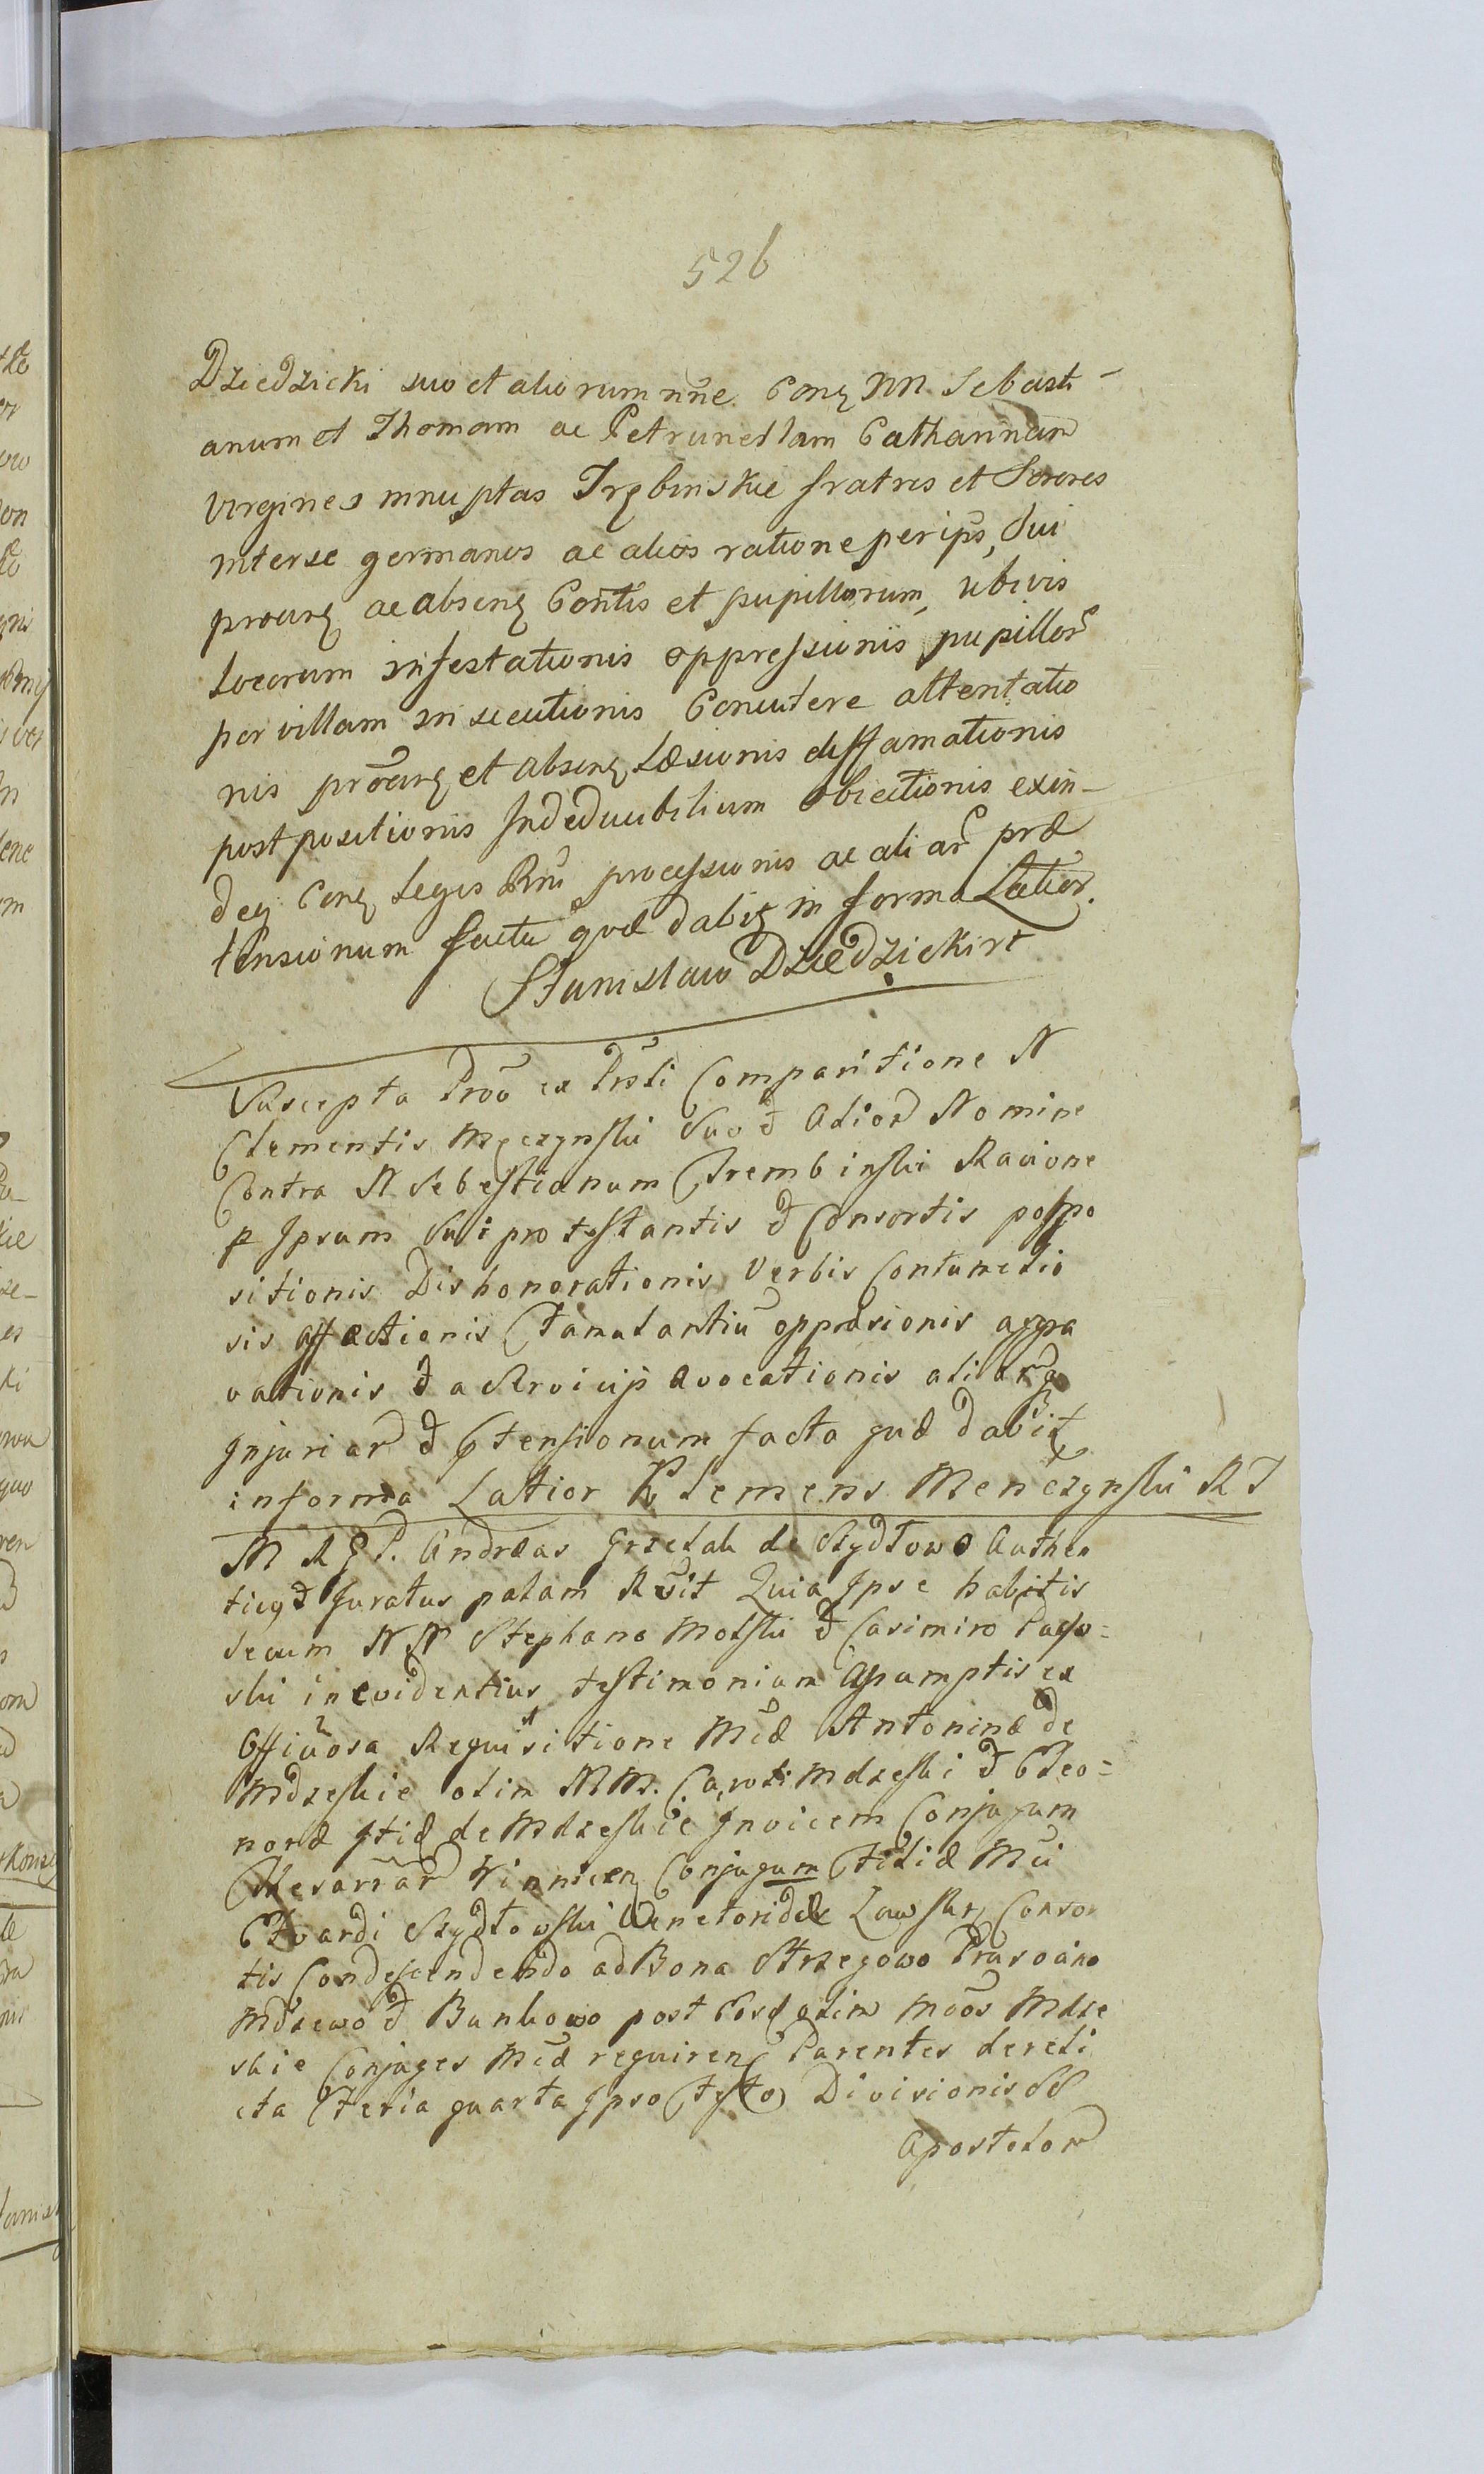 526
Dziedzicki suo et aliorum nne Conq NN Sebasti-
anum et Thomam ac Petrunellam Catharinam
virgines innuptas Trębinskie fratres et Sorores
interse germanos ac alios ratione per ips, Sui
ac absenq Contis et pupillorum, ubivis
locorum infestationis oppressionis pupillor
per villam insecutionis Concutere attentatio
nis et absenq Læsionis diffamationis
postpositionis Indeducibilium obiectionis exin-
deq Conq Legis Rni processionis ac aliar præ
tensionum facta quæ dabitq in forma Latior.
Stanislaw Dziedzicki
Suscepta Prõõ ex Prsti Comparitione N
Clementis Męczynski Suo & Alior Nomine
Contra N Sebestianum Trembinski Racione
p Ipsum Sui protestantis & Consortis pospo
sitionis Dishonorationis Verbis Contumelio
sis affectionis Famulantiu oppræsionis aggra
vationis & a Servicijs avocationis aliar
Injuriar & Ptensionum facta quæ dabit
in forma Latior Klemens Menczynski
M R G P. Andreas Grzelak de Szydłowo Authen
ticq & Juratus palam Rvit Quia Ipse habitis
secum NN Stephano Molski & Casimiro Pago=
ski in evidentius testimonium Assumptis ex
Officiosa Requisitione Mcæ Antoninæ de
Mdzeskie olim MM. Caroli Mdzeski & Eleo=
noræ Itid de Mdzeskie Invicem Conjugum
Thesaurar Winnicen Conjugum Filiæ Mci
Edvardi Szydłowski Venatoridæ Zawskr Consor
tis Condescendendo ad Bona Strzegowo Prusocino
Mdzewo & Bunkowo post Eosd olim Mcos Mdze
skie Conjuges Mcæ requirenq Parentes dereli
cta Feria quarta Ipso Festo Divisionis SS
Apostolor